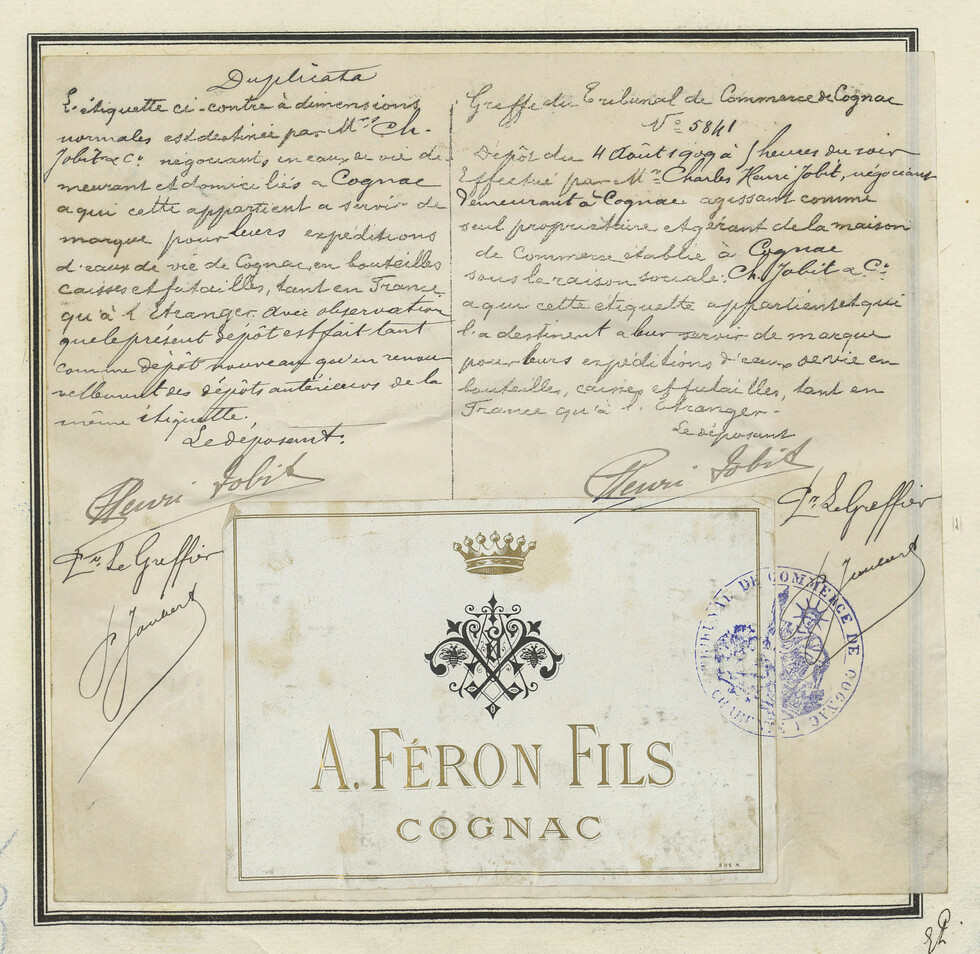 Duplicata
L'étiquette ci-contre à dimensions
normales est destinée par Mrs Ch.
Jobit & Co négociants en eaux de vie de
meurant et domiciliés a Cognac
a qui cette appartient a servir de
marque pour leurs expéditions
d'eaux de vie de Cognac, en bouteilles
caisses et futailles, tant en France
qu'à l'Étranger. Avec observation
que le présent dépôt est fait tant
comme dépôt nouveau qu'en renou
vellement des dépôts antérieurs de la
même étiquette.
Le déposant.
Henri Jobit
Pr. Le Greffier
Greffe du Tribunal de Commerce de Cognac
No 5841
Dépôt du 4 Août 1909 à 5 heures du soir
Effectué par Mr. Charles Henri Jobit, négociant
demeurant à Cognac agissant comme
seul propriétaire et gérant de la maison
de Commerce établie à Cognac
sous la raison sociale: Ch. Jobit & Co.
a qui cette étiquette appartient et qui
l'a destinent a leur servir de marque
pour leurs expéditions d'eaux de vie en
bouteilles, caisses et futailles, tant en
France qu'à l'Étranger.
Le déposant
Henri Jobit
Pr. Le Greffier
TRIBUNAL DE COMMERCE DE COGNAC
A. FÉRON FILS
COGNAC